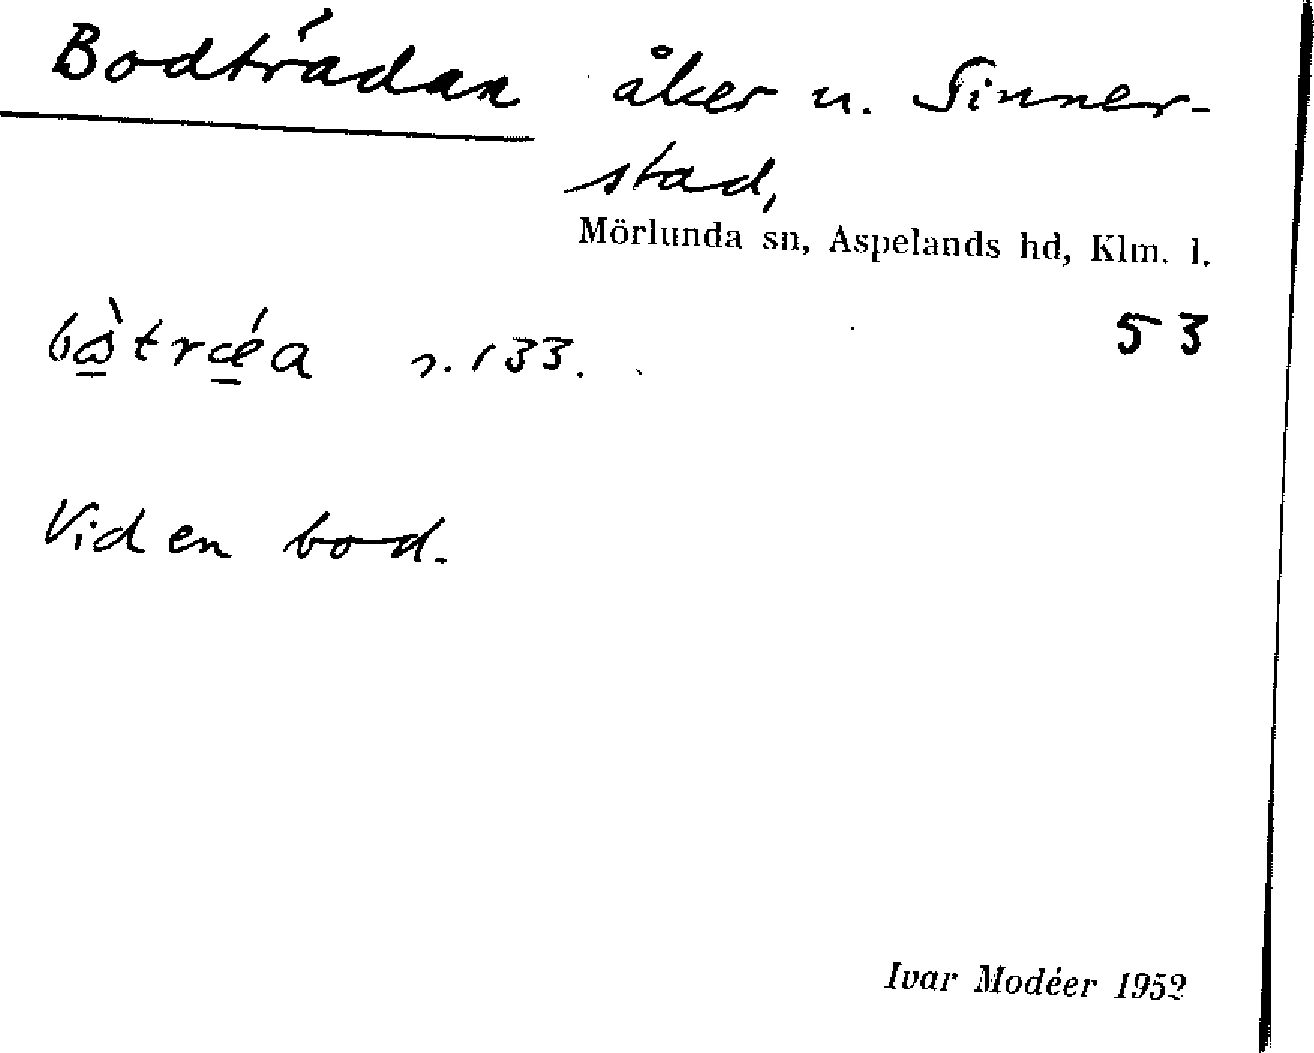 Bodträdan åker u. Sinner-
stad,
Mörlunda sn, Aspelands hd, Klm. l.
53
bὼtrǽa r. 133.
Vid en bod.
Ivar Modéer 1952